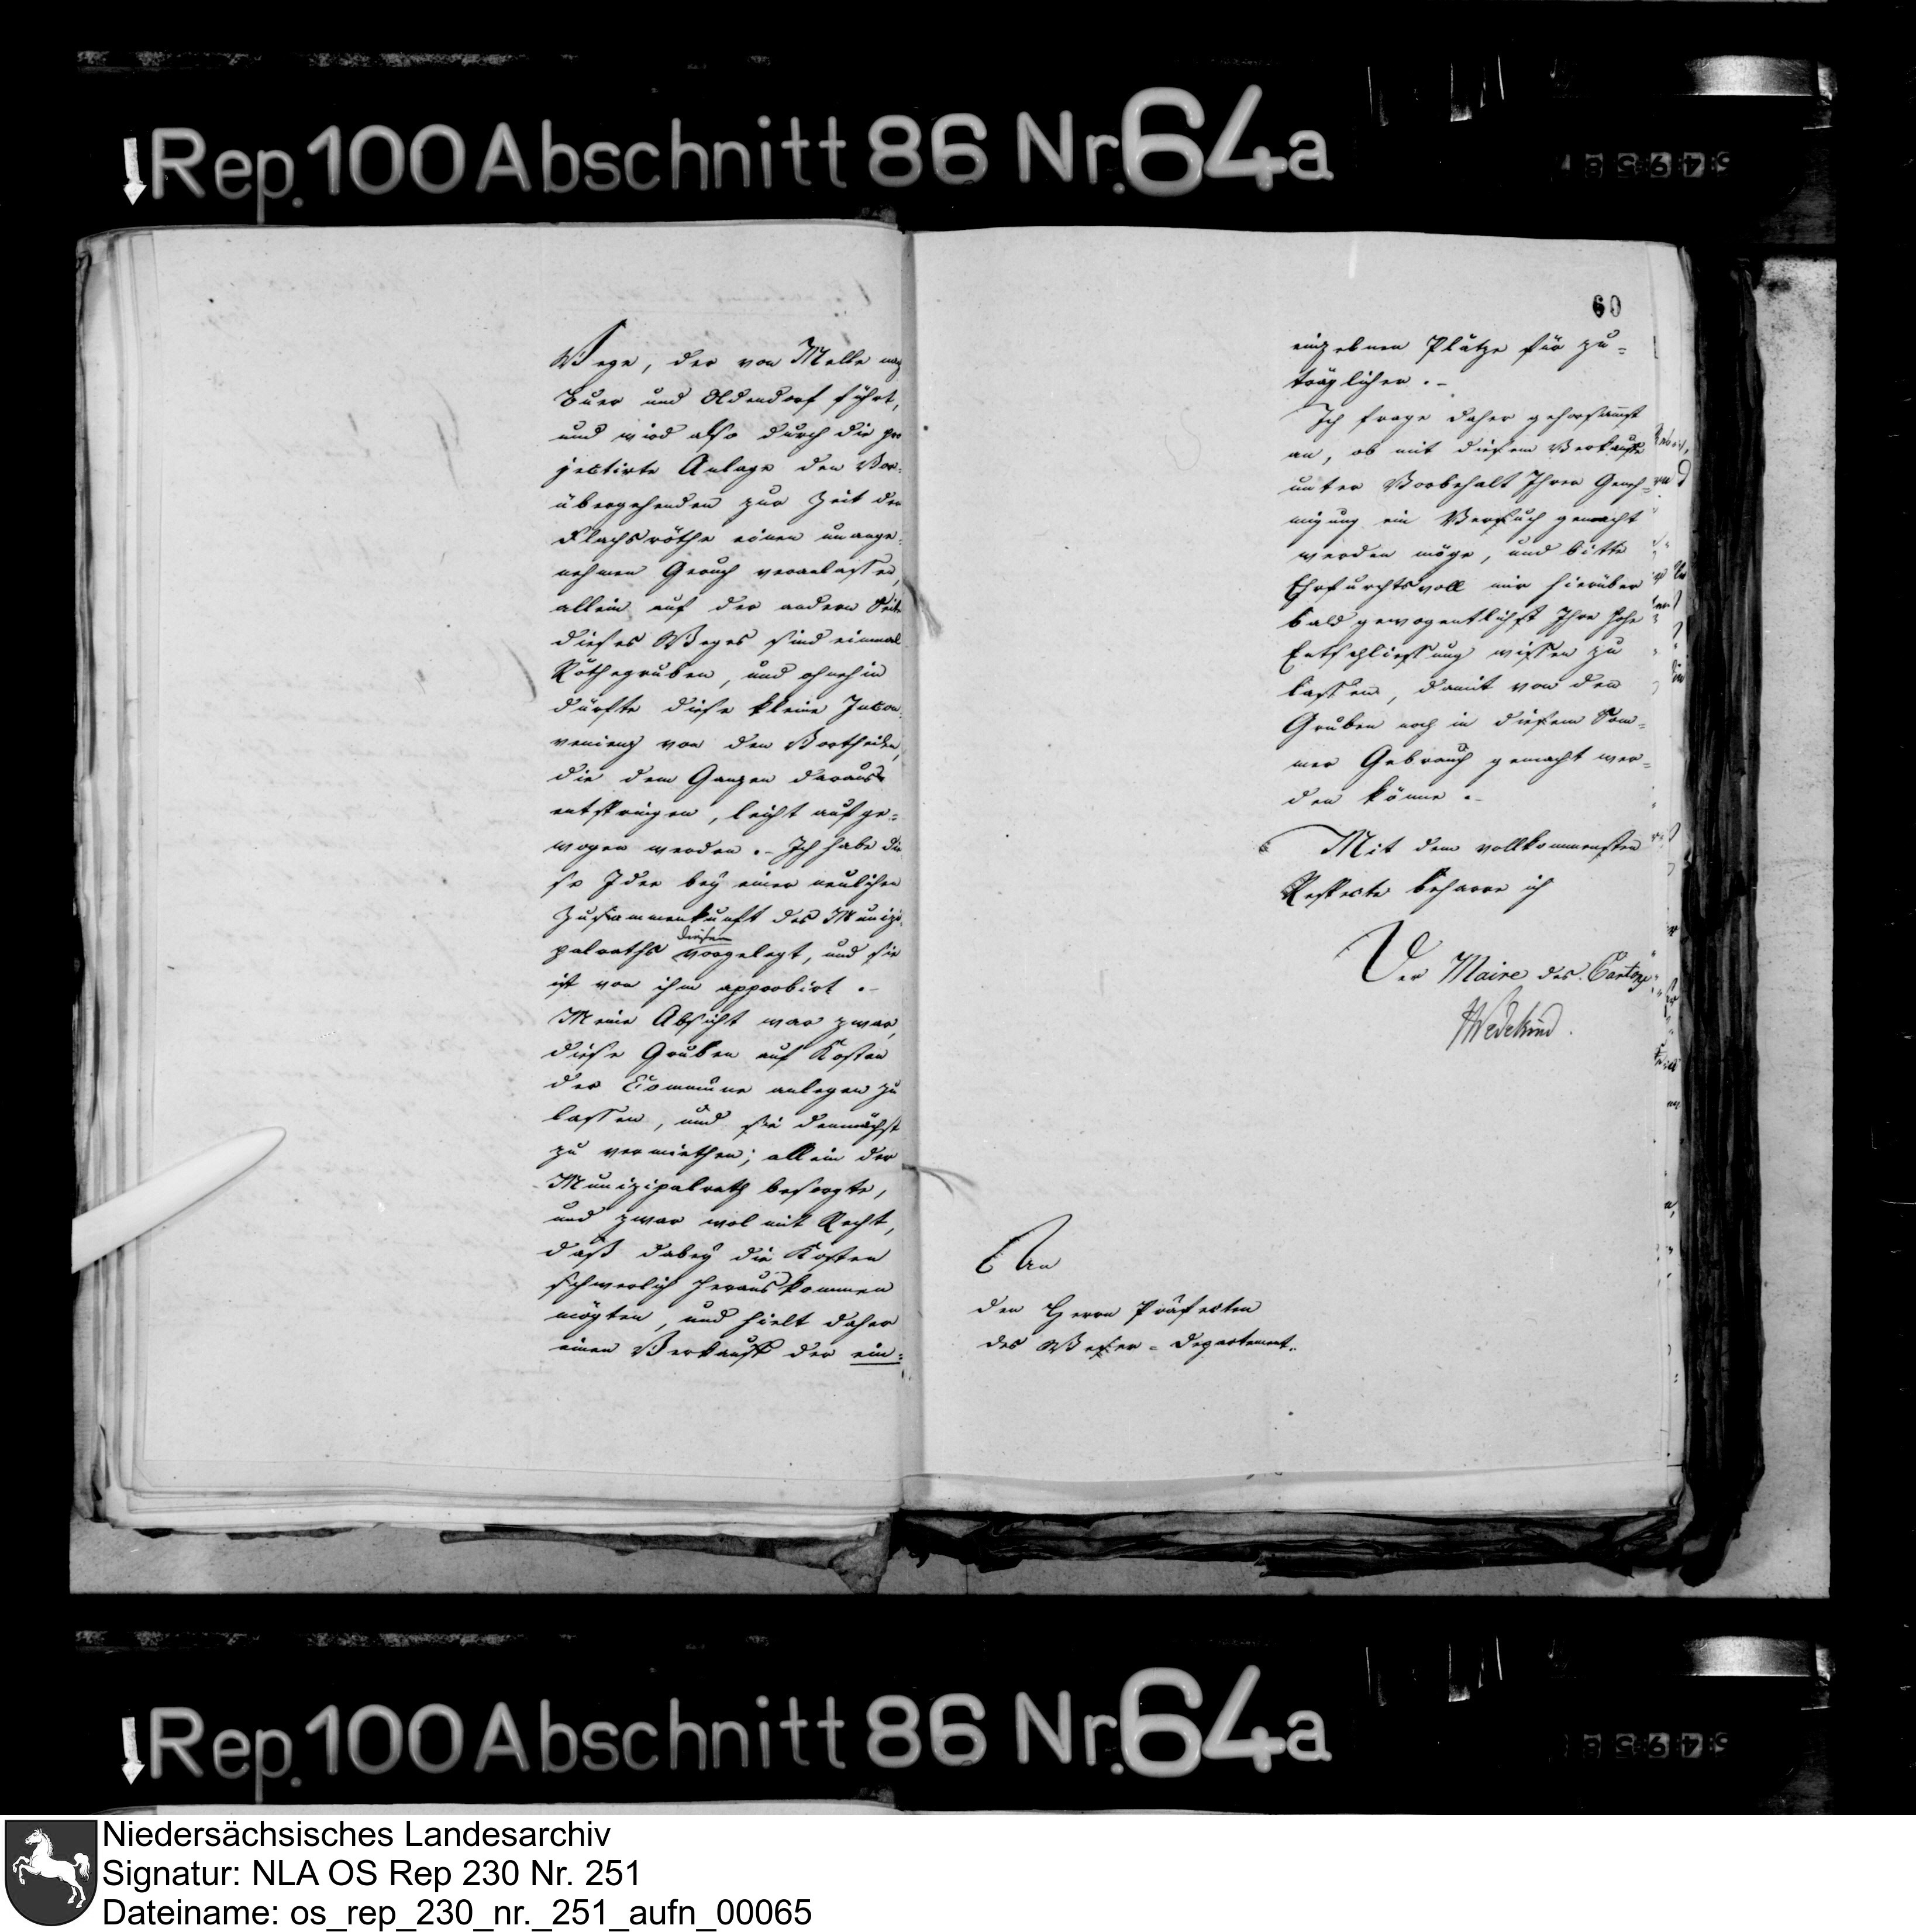 Rep. 100 Abschnitt 86 Nr. 64a
Wege, der von Melle nach
Buer und Oldendorf führt,
und wird also durch die pro
jectirte Anlage den Vor-
übergehenden zur Zeit der
Flachsröthe einen unange-
nehmen Geruch veranlassen,
allein auf der andern Seite
dieses Weges sind einmal
Röthegruben, und ohnehin
dürfte diese kleine Incon-
venienz von den Vortheilen,
die dem Ganzen daraus
entspringen, leicht aufge-
wogen werden. - Ich habe die
se Idee bey einer neulichen
Zusammenkunft des Munizi-
diesem
palraths vorgelegt, und sie
ist von ihm approbirt. -
Meine Absicht war zwar,
diese Gruben auf Kosten
der Commüne anlegen zu
lassen, und sie demnächst
zu vermiethen; allein der
Munizipalrath besorgte,
und zwar wol mit Recht,
daß dabey die Kosten
schwerlich herauskommen
mögten, und hielt daher
einen Verkauff der ein-
60
einzelnen Plätze für zu-
träglicher. -
Ich frage daher gehorsamst
an, ob mit diesem Verkauffe
unter Vorbehalt Ihrer Geneh-
migung ein Versuch gemacht
werden möge, und bitte
Ehrfurchtsvoll mir hierüber
bald gewogentlichst Ihre hohe
Entschliessung wissen zu
lassen, damit von den
Gruben noch in diesem Som-
mer Gebrauch gemacht wer-
den könne. -
Mit dem vollkommensten
Respecte beharre ich
Der Maire des Cantons
Wedekind.
An
den Herrn Präfecten
des Weser-Departement.
Rep. 100 Abschnitt 86 Nr. 64a
Niedersächsisches Landesarchiv
Signatur: NLA OS Rep 230 Nr. 251
Dateiname: os_rep_230_nr._251_aufn_00065